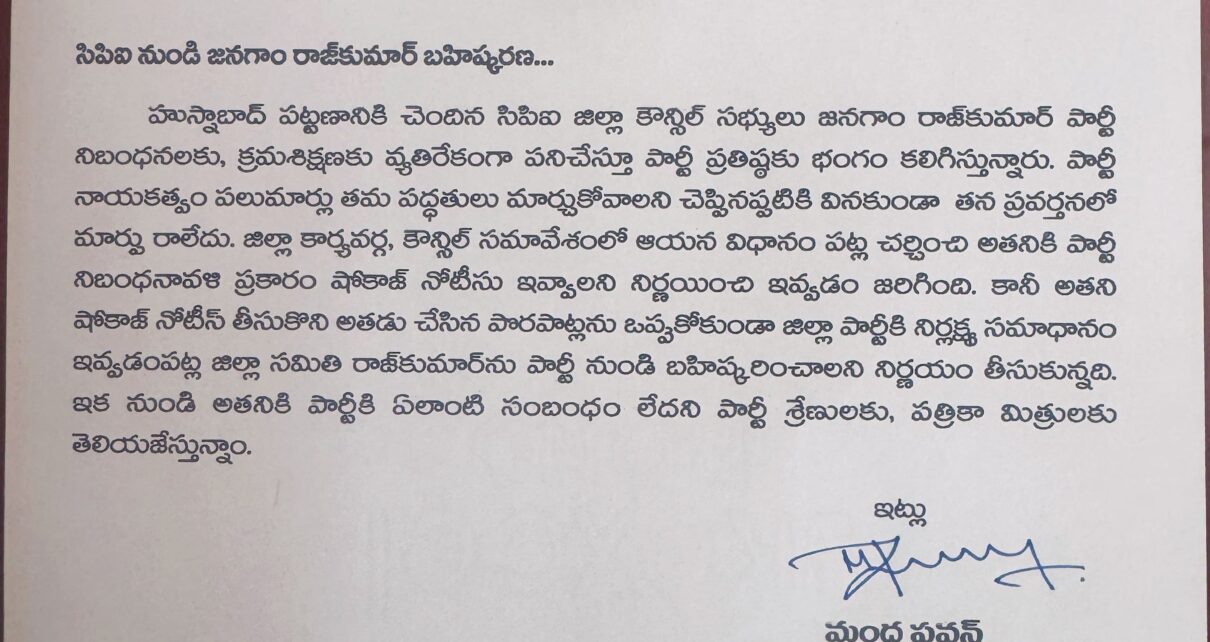 సిపిఐ నుండి జనగాం రాజ్‌కుమార్ బహిష్కరణ...
హుస్నాబాద్ పట్టణానికి చెందిన సిపిఐ జిల్లా కౌన్సిల్ సభ్యులు జనగాం రాజ్‌కుమార్ పార్టీ
నిబంధనలకు, క్రమశిక్షణకు వ్యతిరేకంగా పనిచేస్తూ పార్టీ ప్రతిష్ఠకు భంగం కలిగిస్తున్నారు. పార్టీ
నాయకత్వం పలుమార్లు తమ పద్ధతులు మార్చుకోవాలని చెప్పినప్పటికి వినకుండా తన ప్రవర్తనలో
మార్పు రాలేదు. జిల్లా కార్యవర్గ, కౌన్సిల్ సమావేశంలో ఆయన విధానం పట్ల చర్చించి అతనికి పార్టీ
నిబంధనావళి ప్రకారం షోకాజ్ నోటీసు ఇవ్వాలని నిర్ణయించి ఇవ్వడం జరిగింది. కానీ అతని
షోకాజ్ నోటీస్ తీసుకొని అతడు చేసిన పొరపాట్లను ఒప్పుకోకుండా జిల్లా పార్టీకి నిర్లక్ష్య సమాధానం
ఇవ్వడంపట్ల జిల్లా సమితి రాజ్‌కుమార్‌ను పార్టీ నుండి బహిష్కరించాలని నిర్ణయం తీసుకున్నది.
ఇక నుండి అతనికి పార్టీకి ఏలాంటి సంబంధం లేదని పార్టీ శ్రేణులకు, పత్రికా మిత్రులకు
తెలియజేస్తున్నాం.
ఇట్లు
మంద పవన్